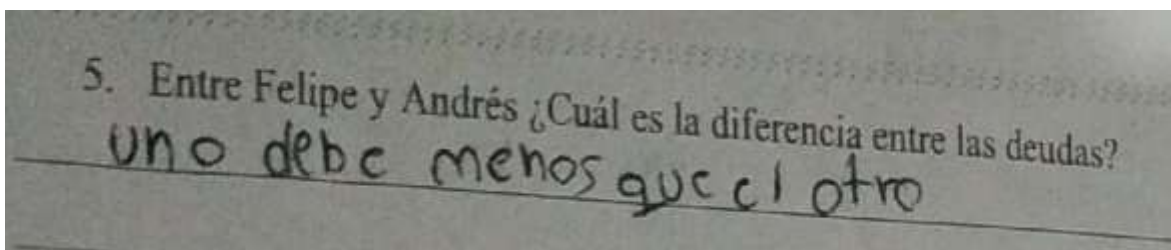 5. Entre Felipe y Andrés ¿Cuál es la diferencia entre las deudas?
uno debe menos que el otro